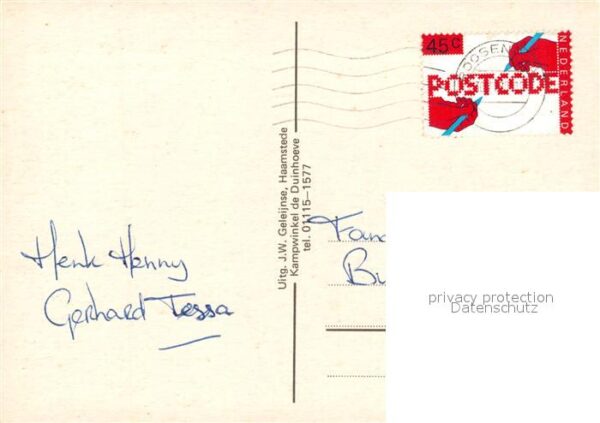 45c
POSTCODE
NEDERLAND
Uitg. J.W. Geleijnse, Haamstede
Kampwinkel de Duinhoeve
tel. 01115-1577
Henk Henny
Gerhard Tessa
privacy protection
Datenschutz